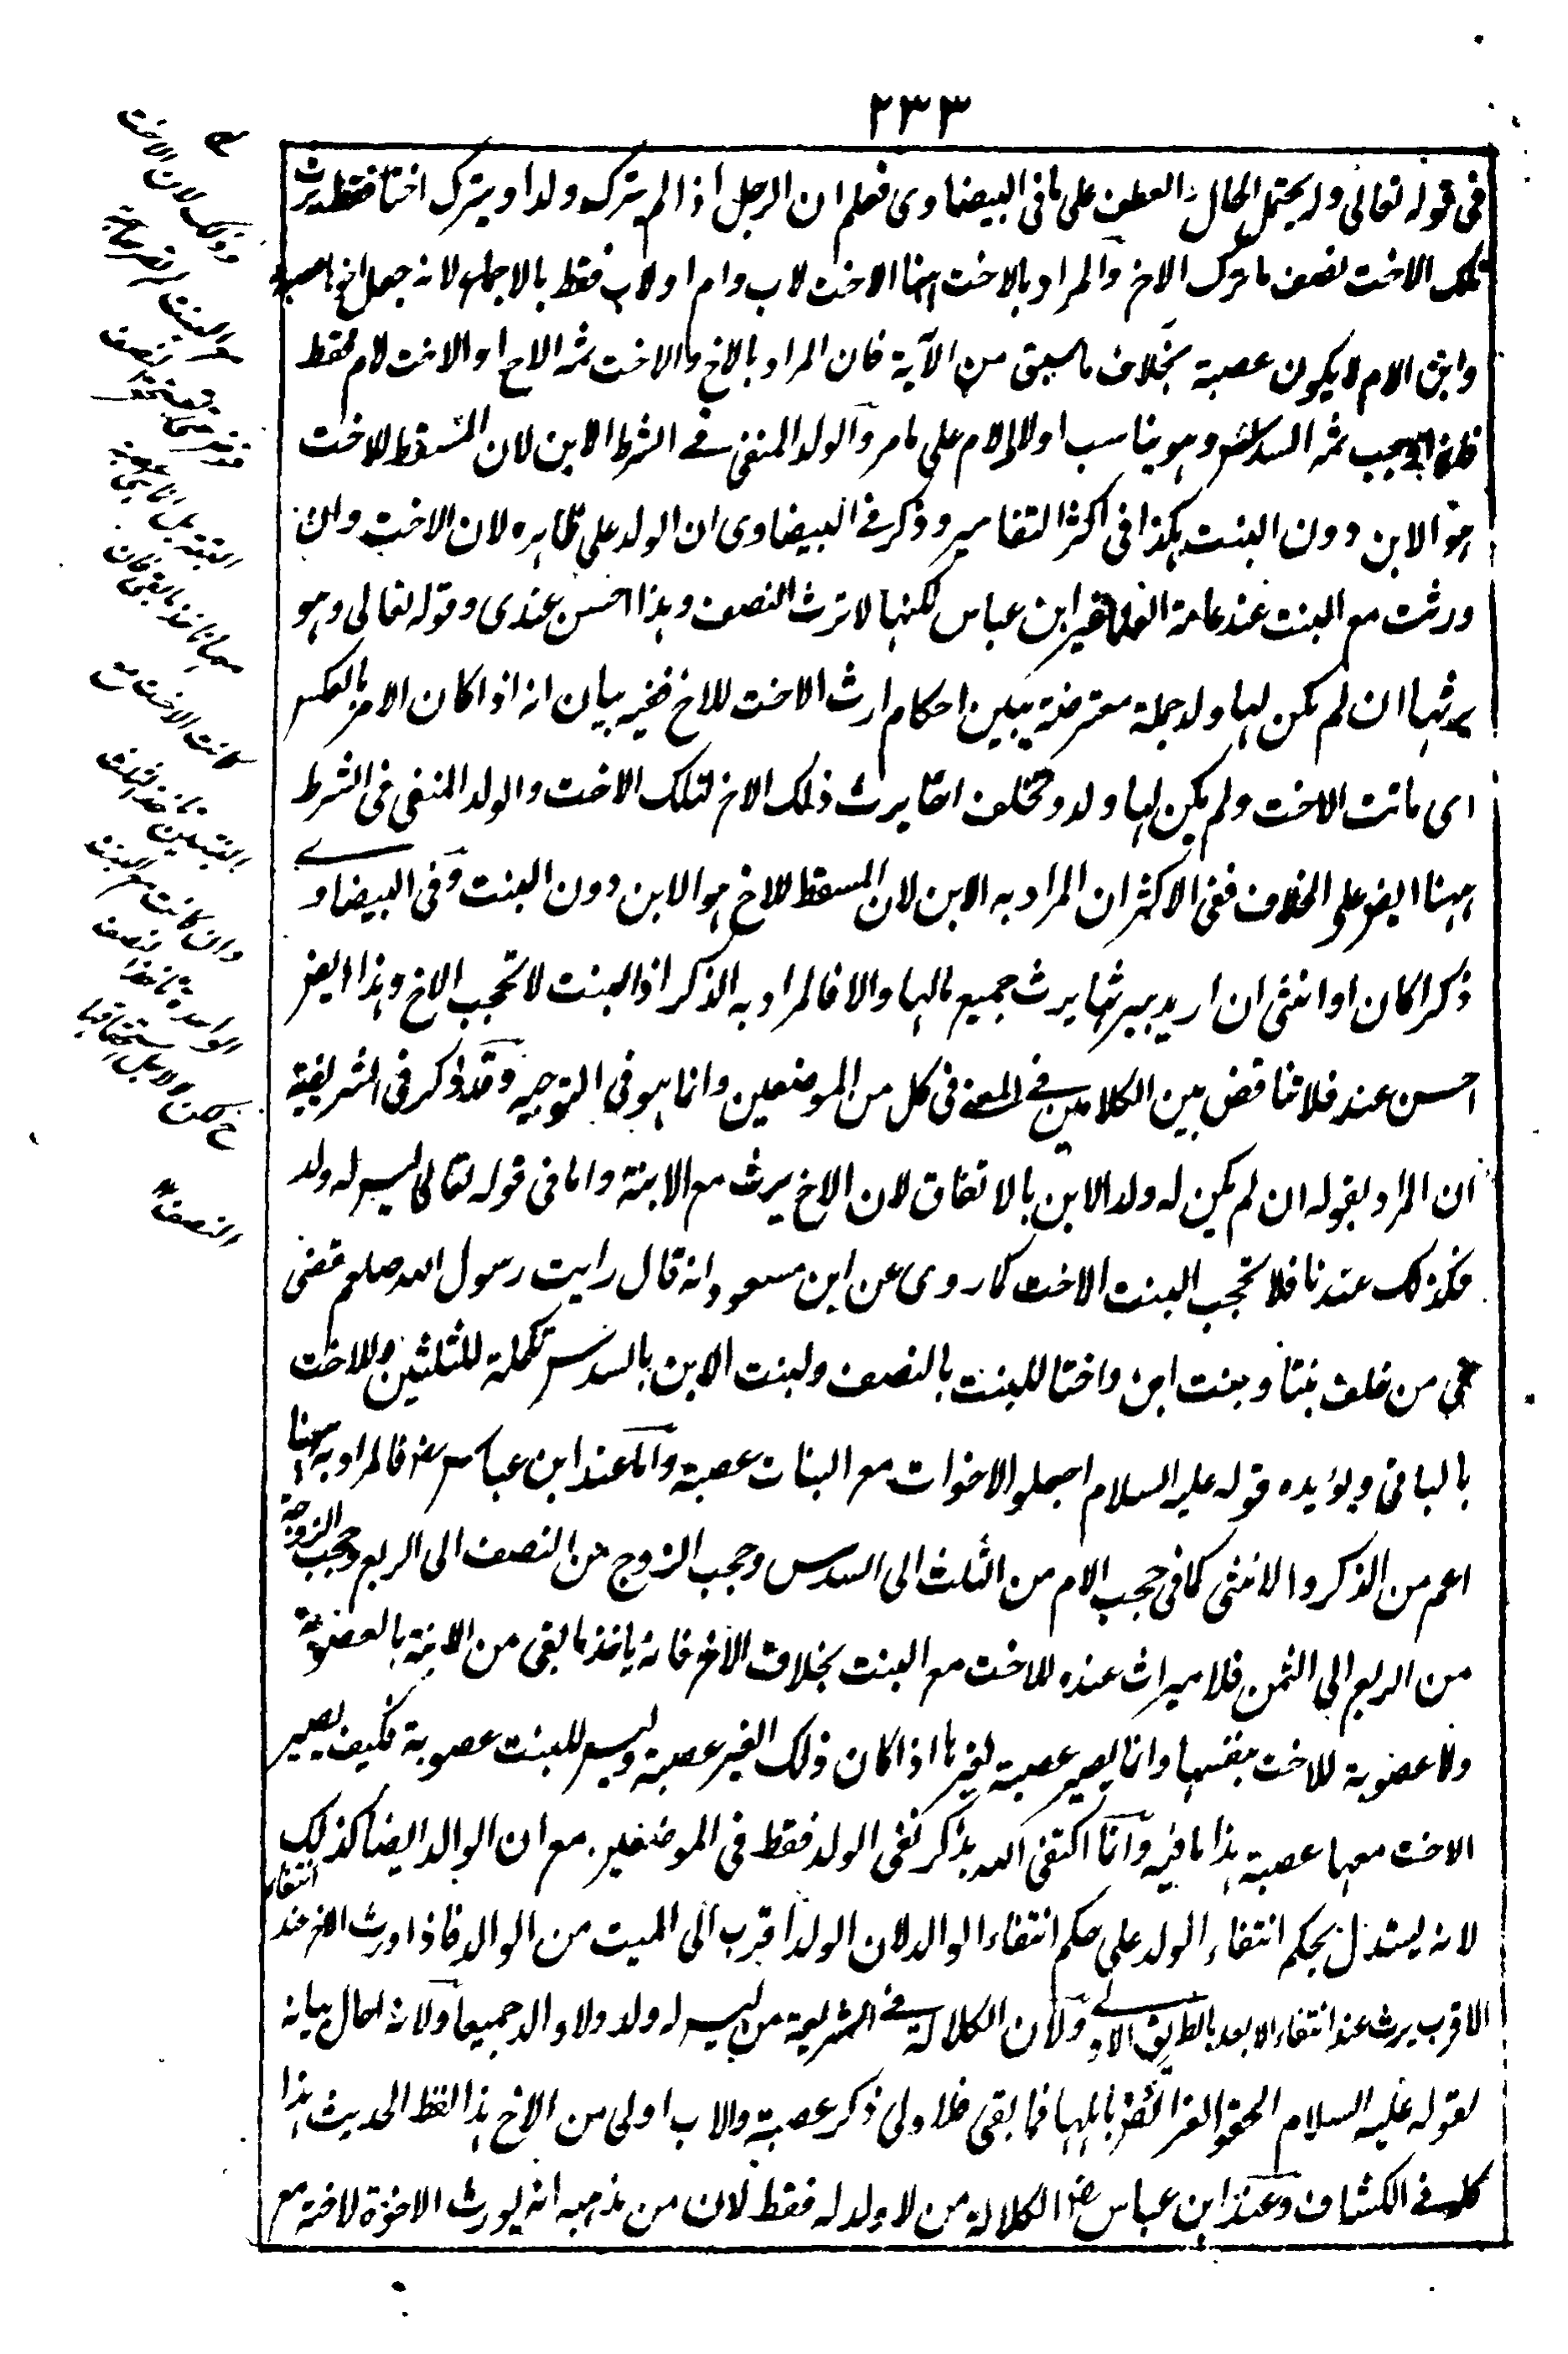 ٢٣٣
في قوله تعالى وله يحتمل الحال والعطف على ما في البيضاوى فعلم ان الرجل اذا لم يترك ولدا ويترك اختا فقط يرث
تلك الاخت نصف ما ترك الاخ والمراد بالاخت ههنا الاخت لاب وام او لاب فقط بالاجماع لانه جعل اخوها عصبة
وابن الام لا يكون عصبة بخلاف ما سبق من الآية فان المراد بالاخ والاخت ثمه الاخ او الاخت لام فقط
ثمه السدس وهو يناسب اولاد الام على ما مر والولد المنفى في الشرط الابن لان المسقط للاخت
هو الابن دون البنت هكذا فى اكثر التفاسير وذكر في البيضاوى ان الولد على ظاهره لان الاخت وان
ورثت مع البنت عند عامة العلماء غير ابن عباس لكنها لا ترث النصف وهذا احسن عندى وقوله تعالى وهو
يرثها ان لم يكن لها ولد جملة معترضة يبين احكام ارث الاخت للاخ ففيه بيان انه اذا كان الامر بالعكس
اى ماتت الاخت ولم يكن لها ولد وتخلف اخا يرث ذلك الاخ لتلك الاخت والولد المنفى فى الشرط
ههنا ايضو على الخلاف ففى الاكثر ان المراد به الابن لان المسقط للاخ هو الابن دون البنت وفى البيضاوے
ذكرا كان او انثى ان اريد بيرثها يرث جميع مالها والا فالمراد به الذكر اذ البنت لا تحجب الاخ وهذا ايضو
احسن عند فلا تناقض بين الكلامين في المعنے فى كل من الموضعين وانما هو فى التوجيه وقد ذكر فى الشريفية
ان المراد بقوله ان لم يكن له ولد الابن بالاتفاق لان الاخ يرث مع الابنة واما فى قوله تعالى ليس له ولد
فكذلك عندنا فلا تحجب البنت الاخت كما روى عن ابن مسعود انه قال رايت رسول الله صلعم قضى
في من خلف بنتا وبنت ابن واختا للبنت بالنصف ولبنت الابن بالسدس تكملة للثلثين وللاخت
بالباقى ويؤيده قوله عليه السلام اجعلوا الاخوات مع البنات عصبة واما عند ابن عباس رض فالمراد به ههنا
اعم من الذكر والانثى كما فى حجب الام من الثلث الى السدس وحجب الزوج من النصف الى الربع وحجب الزوجة
من الربع الى الثمن فلا ميراث عنده للاخت مع البنت بخلاف الاخ فانه ياخذ ما بقى من الابنة بالعضوبة
ولا عضوبة للاخت بنفسها وانما يصير عصبة لغيرها اذا كان ذلك الغير عصبة وليس للبنت عصوبة فكيف يصير
الاخت معها عصبة هذا ما فيه وانما اكتفى الله بذكر نفى الولد فقط فى الموضعين مع ان الوالد ايضا كذلك
لانه يستدل بحكم انتفاء الولد على حكم انتفاء الوالد لان الولد اقرب الى الميت من الوالد فاذا ورث الاخ عند انتفاء
الاقرب يرث عند انتفاء الابعد بالطريق الاولے ولان الكلالة في الشريعة من ليس له ولد ولا والد جميعا ولانه احال بيانه
لقوله عليه السلام الحقوا الفرائض باهلها فما بقى فلاولى ذكر عصبة والاب اولى من الاخ هذا لفظ الحديث هذا
كله في الكشاف وعند ابن عباس رض الكلالة من لا ولد له فقط لان من مذهبه انه يورث الاخوة لاخته مع
وذلك لان الاخت
مع البنت
النصف
معها تاخذ ما بقى فان
كانت الاخت مع
البنتين تاخذ الثلث
وان كانت مع البنت
الواحدة تاخذ النصف
لكن لا لاجل استحقاقها
النصف